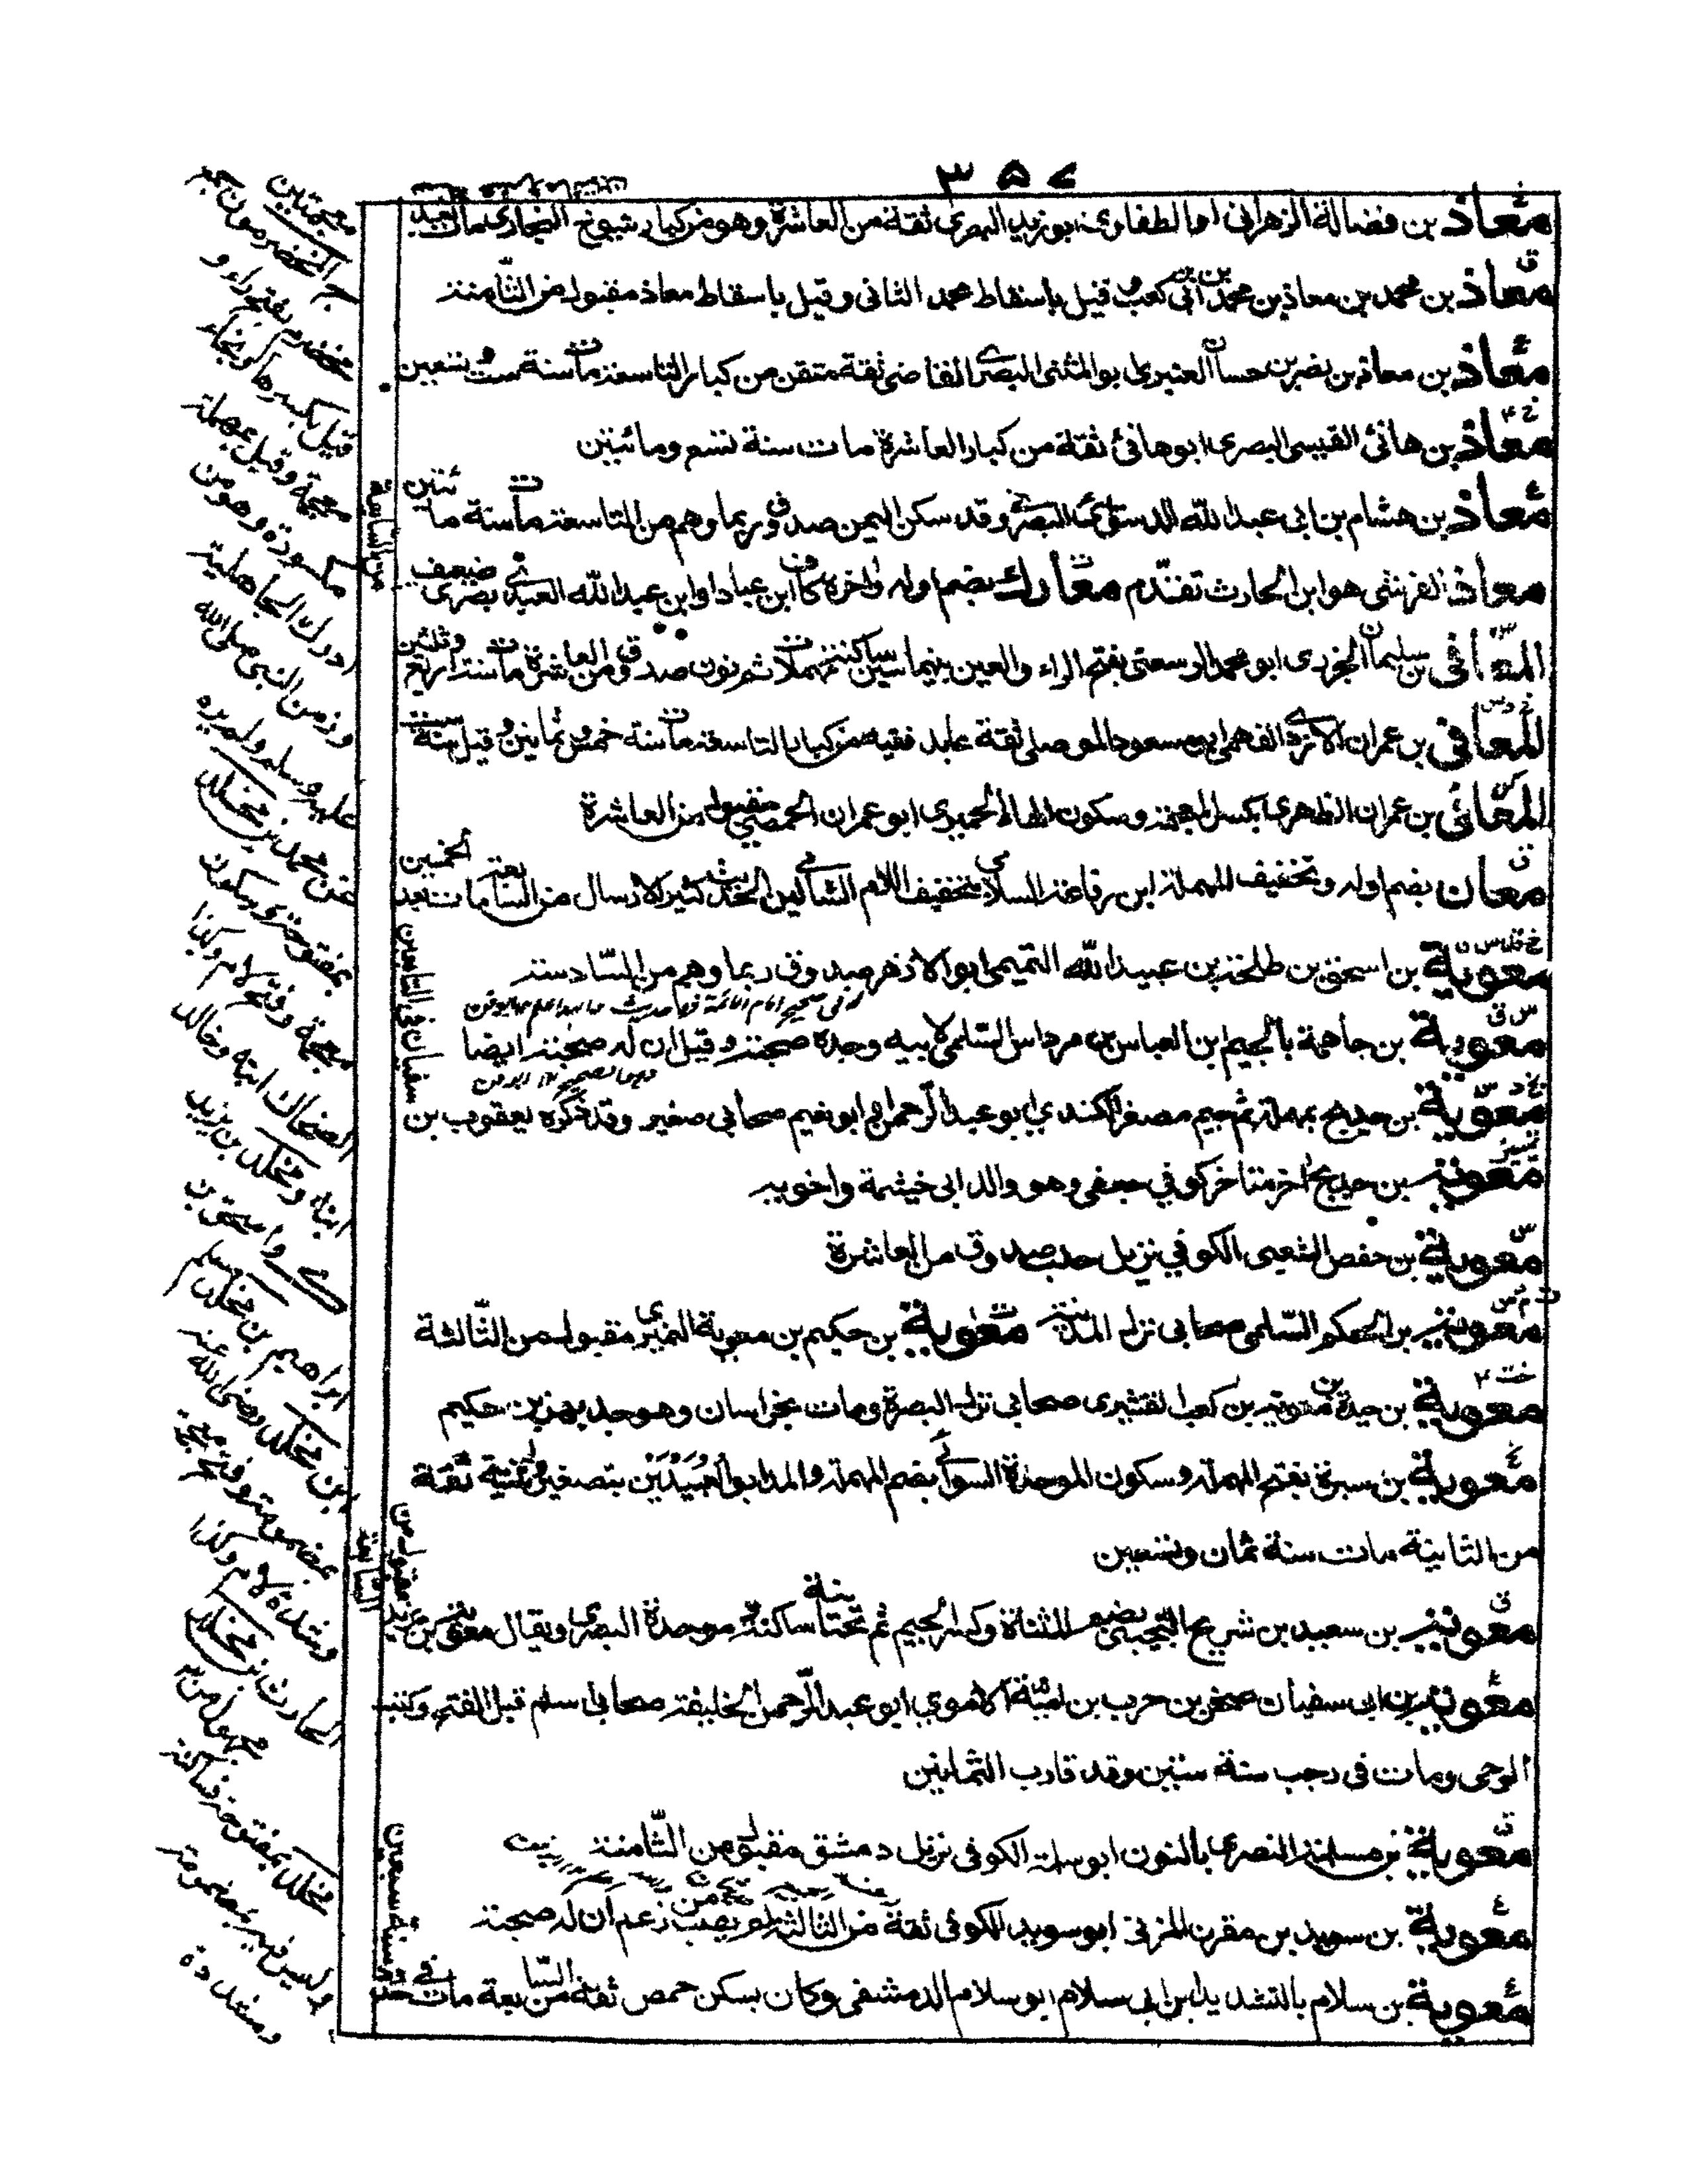 ۳۵۷
خ
معاذ بن فضالة الزهراني او الطفاوي ابو زيد البصري ثقة من العاشرة وهو من كبار شيوخ البخاري مات بعد
ق
معاذ بن محمد بن معاذ بن محمد بن ابي بن كعب قيل باسقاط محمد الثاني وقيل باسقاط معاذ مقبول من الثامنة
ع
معاذ بن معاذ بن نصر بن حسان العنبري ابو المثنى البصري القاضي ثقة متقن من كبار التاسعة مات سنة ست وتسعين
خ ۴
معاذ بن هانئ القيسي البصري ابو هانئ ثقة من كبار العاشرة مات سنة تسع ومائتين
ع
معاذ بن هشام بن ابي عبد الله الدستوائي البصري وقد سكن اليمن صدوق ربما وهم من التاسعة مات سنة مائتين
معاذ القرشي هو ابن الحارث تقدم معارك بضم اوله واخره كاف ابن عباد او ابن عبد الله العبدي بصري ضعيف من السابعة
س
المعافى بن سليمان الجزري ابو محمد الرسعني بفتح الراء والعين بينهما سين ساكنة مهملات ثم نون صدوق من العاشرة مات سنة اربع وثلثين
خ د س
المعافى بن عمران الازدي الفهمي ابو مسعود الموصلي ثقة عابد فقيه من كبار التاسعة مات سنة خمس وثمانين وقيل سنة ست
كن
المعافى بن عمران الظهري بكسر المعجمة وسكون الهاء الحميري ابو عمران الحمصي مقبول من العاشرة
ق
معان بضم اوله وتخفيف المهملة ابن رفاعة السلامي بتخفيف اللام الشامي لين الحديث كثير الارسال من السابعة مات بعد الخمسين
خ قد س ق
معوية بن اسحق بن طلحة بن عبيد الله التيمي ابو الازهر صدوق ربما وهم من السادسة
س ق
معوية بن جاهمة بالجيم ابن العباس بن مرداس السلمي لابيه وجده صحبة وقيل ان له صحبة ايضا
بخ د س
معوية بن حديج بمهملة ثم جيم مصغر الكندي ابو عبد الرحمن او ابو نعيم صحابي صغير وقد ذكره يعقوب بن سفيان في التابعين
تمييز
معوية بن حديج اخر متاخر كوفي جعفي وهو والد ابي خيثمة واخويه
س
معوية بن حفص الشعبي الكوفي نزيل حلب صدوق من العاشرة
م د س
معوية بن الحكم السلمي صحابي نزل المدينة معوية بن حكيم بن معوية النميري مقبول من الثالثة
خت ۴
معوية بن حيدة بن معوية بن كعب القشيري صحابي نزل البصرة ومات بخراسان وهو جد بهز بن حكيم
معوية بن سبرة بفتح المهملة وسكون الموحدة السوائي بضم المهملة والمد ابو العبيدين بتصغير وتثنية ثقة
من الثانية مات سنة ثمان وتسعين
ق
معوية بن سعيد بن شريح التجيبي بضم المثناة وكسر الجيم ثم تحتانية ساكنة ثم موحدة البصري ويقال معوية بن يزيد مقبول من السابعة
ع
معوية بن ابي سفيان صخر بن حرب بن امية الاموي ابو عبد الرحمن الخليفة صحابي اسلم قبل الفتح وكتب
الوحي ومات في رجب سنة ستين وقد قارب الثمانين
ق
معوية بن مسلمة النصري بالنون ابو سلمة الكوفي نزيل دمشق مقبول من الثامنة
معوية بن سويد بن مقرن المزني ابو سويد الكوفي ثقة من الثالثة لم يصب من زعم ان له صحبة
ع
معوية بن سلام بالتشديد ابن ابي سلام ابو سلام الدمشقي وكان يسكن حمص ثقة من السابعة مات في حدود سنة سبعين
بمعجمتين
المخضرمون
مخضرم بفتح راء و
قيل بكسرها وبخاء
معجمة وقيل بمهملة
مكسورة وهو من
ادرك الجاهلية
وزمن النبي صلى الله
عليه وسلم ولم يره
محمد بن مخلد
بمفتوحة وسكون
معجمة وفتح لام وكذا
الضحاك ابنه وخالد
ابنه ومخلد بن يزيد
واسحق بن
ابراهيم بن مخلد ومسلم
بن مخلد رضي الله عنه
بمضمومة وفتح معجمة
وشدة لام وكذا
الحارث بن مخلد
مجهول من
مخلد بمفتوحة فساكنة
وليس فيه بمضمومة
ومشددة